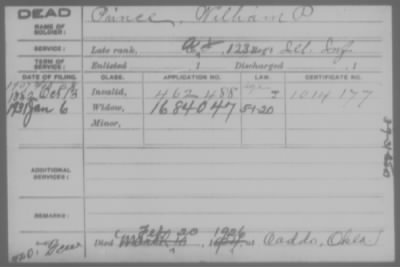 DEAD
NAME OF SOLDIER: Prince, William P.
SERVICE: Late rank, 123 Regt Ill. Inf
TERM OF SERVICE: Enlisted , 1 Discharged , 1
DATE OF FILING. CLASS. APPLICATION NO. LAW. CERTIFICATE NO.
1882 Oct 13 Invalid, 462 488 1014 177
1931 Jan 6 Widow, 1684047 5-1-20
Minor,
ADDITIONAL SERVICES:
REMARKS:
Died Feb 20 1926 at Caddo, Okla